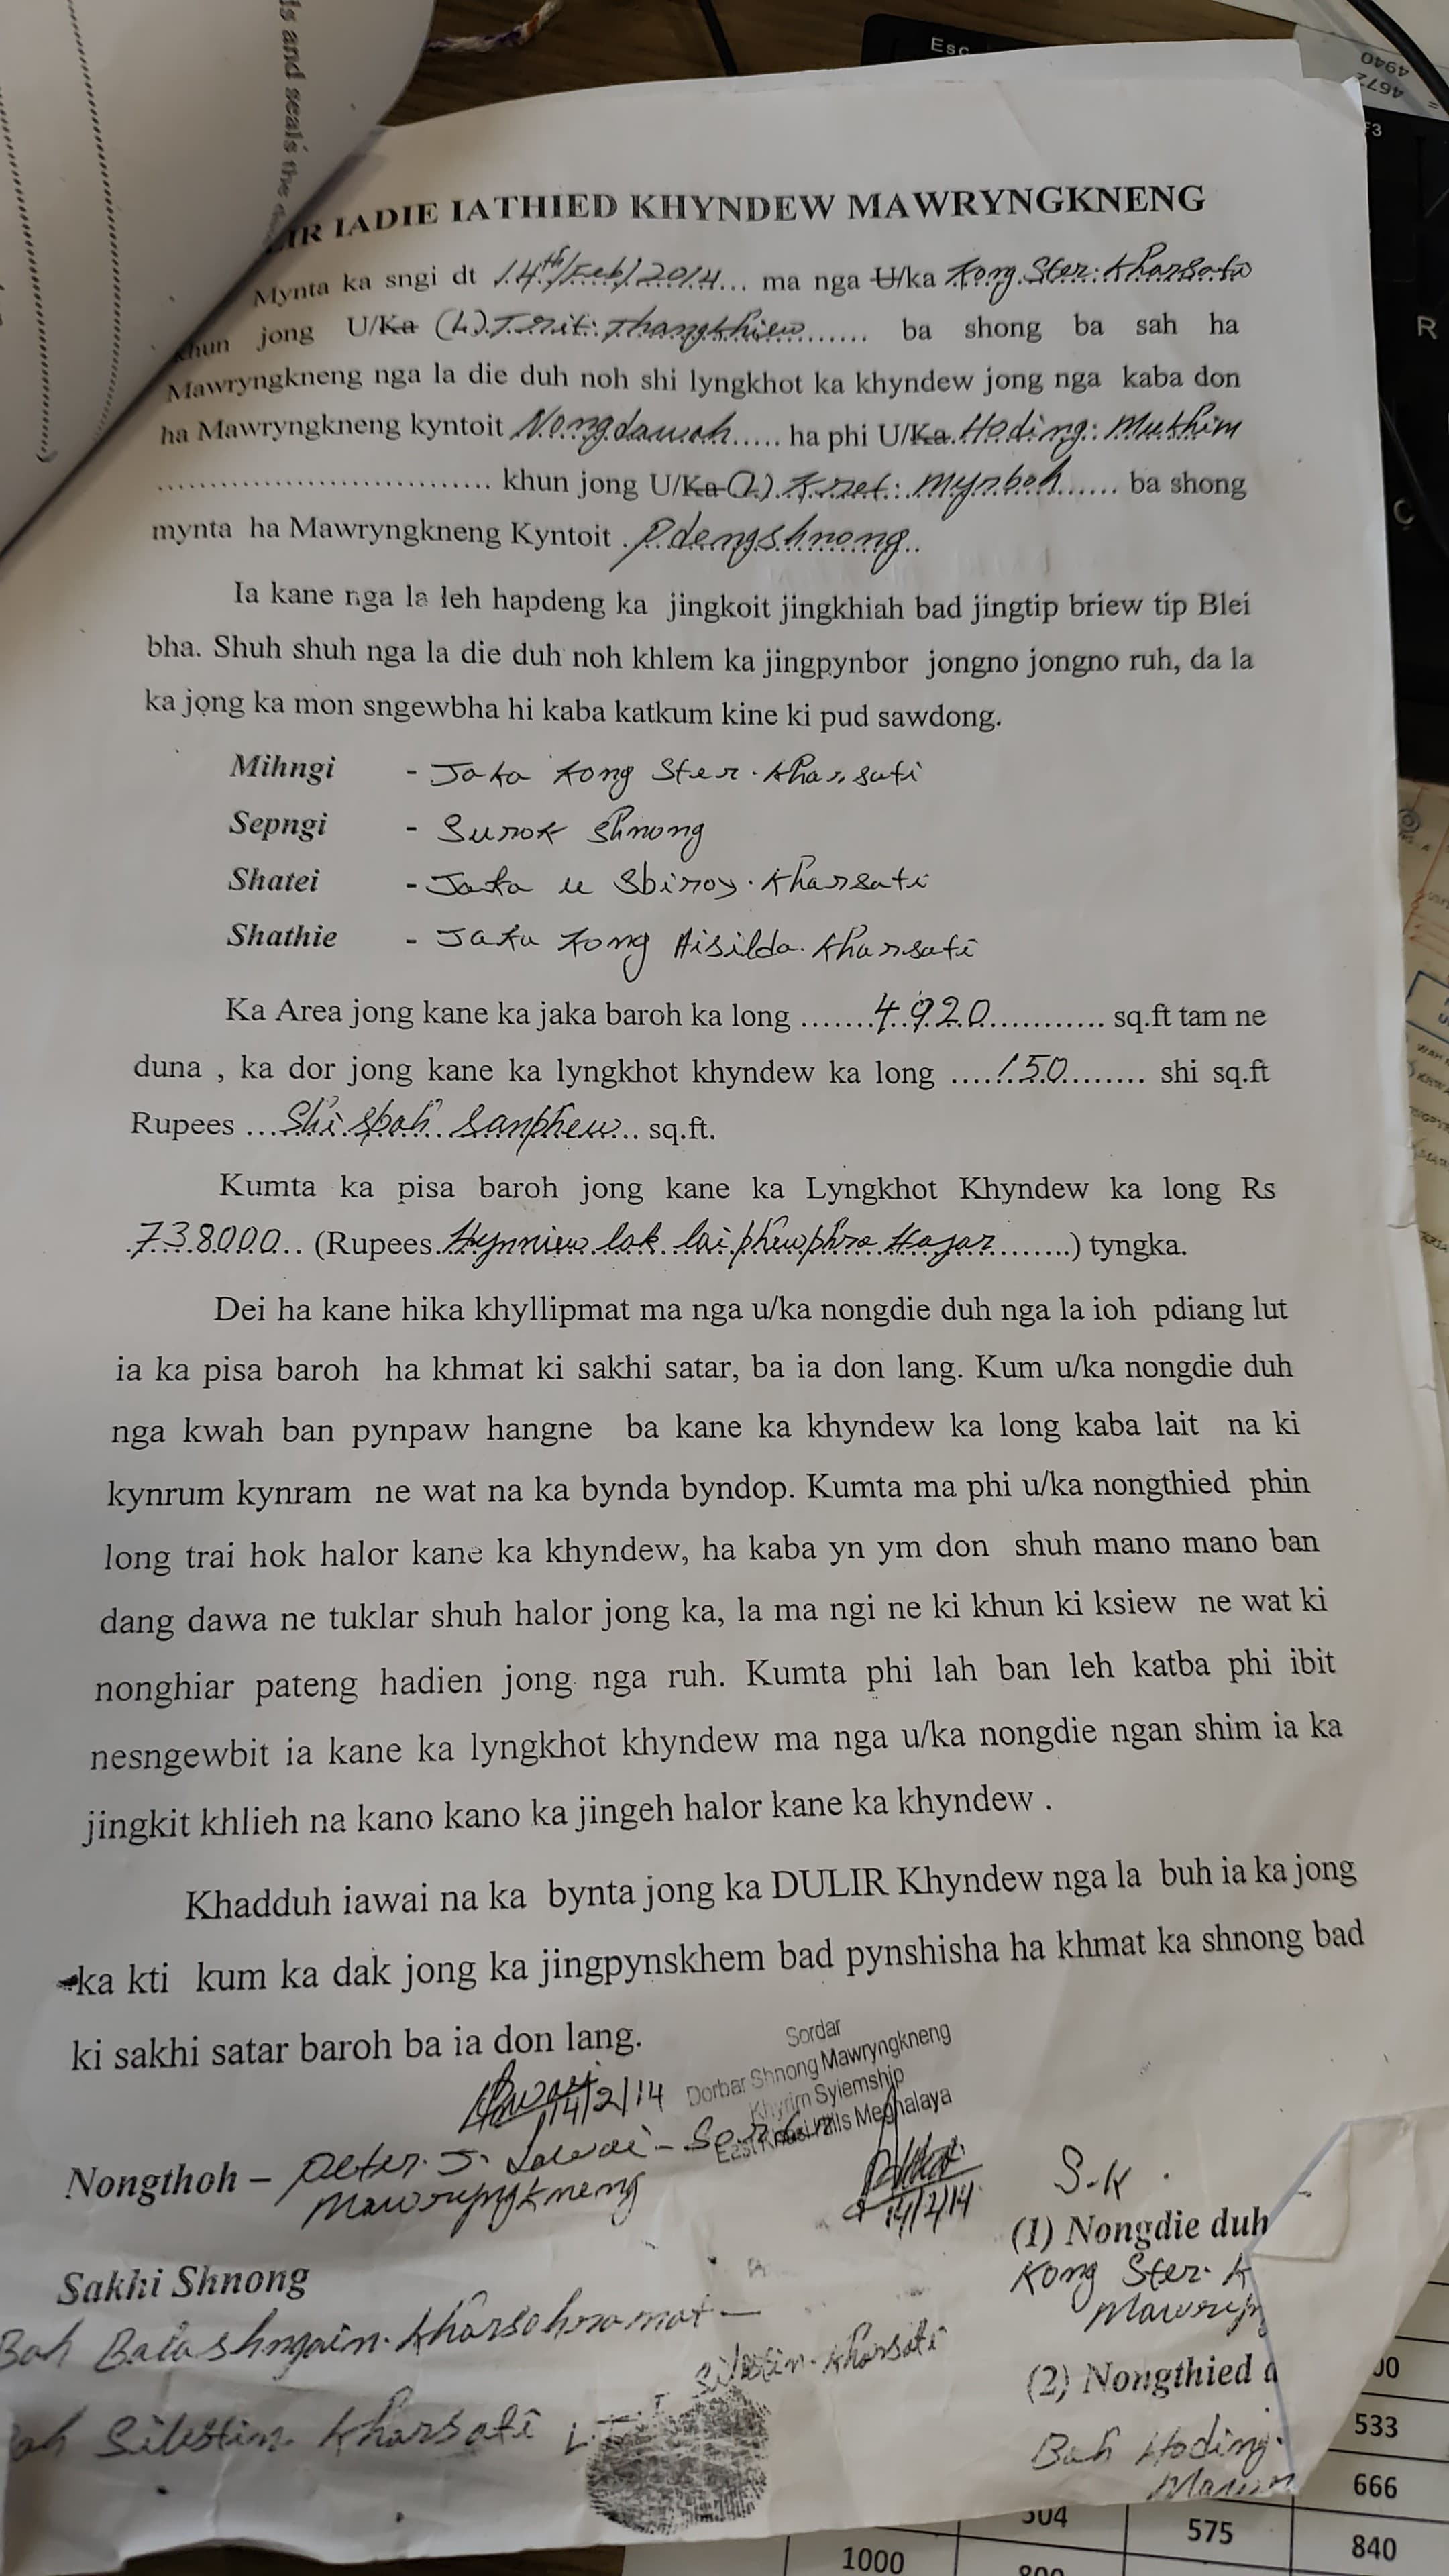 ls and seals the
Esc
4672
4940
F3
R
C
LIR IADIE IATHIED KHYNDEW MAWRYNGKNENG
Mynta ka sngi dt 14th/Feb/2014... ma nga U/ka Kong Ster: Kharsati
khun jong U/Ka (L) Trit: Thangkhiew........ ba shong ba sah ha
Mawryngkneng nga la die duh noh shi lyngkhot ka khyndew jong nga kaba don
ha Mawryngkneng kyntoit Nongdawah..... ha phi U/Ka Hoding: Mukhim
................................ khun jong U/Ka (L) Kret: Mynboh...... ba shong
mynta ha Mawryngkneng Kyntoit . Pdengshnong..
Ia kane nga la leh hapdeng ka jingkoit jingkhiah bad jingtip briew tip Blei
bha. Shuh shuh nga la die duh noh khlem ka jingpynbor jongno jongno ruh, da la
ka jong ka mon sngewbha hi kaba katkum kine ki pud sawdong.
Mihngi - Jaka Kong Ster. Kharsati
Sepngi - Surok Shnong
Shatei - Jaka u Sbiroy. Kharsati
Shathie - Jaka Kong Aisilda. Kharsati
Ka Area jong kane ka jaka baroh ka long .......4920........... sq.ft tam ne
duna , ka dor jong kane ka lyngkhot khyndew ka long ....150........ shi sq.ft
Rupees ...Shi spah sanphew... sq.ft.
Kumta ka pisa baroh jong kane ka Lyngkhot Khyndew ka long Rs
.738000... (Rupees Hynniew lak lai phew phra Hajar.......) tyngka.
Dei ha kane hika khyllipmat ma nga u/ka nongdie duh nga la ioh pdiang lut
ia ka pisa baroh ha khmat ki sakhi satar, ba ia don lang. Kum u/ka nongdie duh
nga kwah ban pynpaw hangne ba kane ka khyndew ka long kaba lait na ki
kynrum kynram ne wat na ka bynda byndop. Kumta ma phi u/ka nongthied phin
long trai hok halor kane ka khyndew, ha kaba yn ym don shuh mano mano ban
dang dawa ne tuklar shuh halor jong ka, la ma ngi ne ki khun ki ksiew ne wat ki
nonghiar pateng hadien jong nga ruh. Kumta phi lah ban leh katba phi ibit
nesngewbit ia kane ka lyngkhot khyndew ma nga u/ka nongdie ngan shim ia ka
jingkit khlieh na kano kano ka jingeh halor kane ka khyndew .
Khadduh iawai na ka bynta jong ka DULIR Khyndew nga la buh ia ka jong
ka kti kum ka dak jong ka jingpynskhem bad pynshisha ha khmat ka shnong bad
ki sakhi satar baroh ba ia don lang.
14/2/14
Sordar
Dorbar Shnong Mawryngkneng
Khyrim Syiemship
East Khasi Hills Meghalaya
Nongthoh – Peter. S. Lawai –
Mawryngkneng
14/2/14
S.K.
(1) Nongdie duh
Kong Ster. K
Mawry
Sakhi Shnong
Bah Balashngain. Kharsohnamat –
Silestin. Kharsati
ah Silestin. Kharsati L.T.I
(2) Nongthied
Bah Hoding.
00
533
666
504
575
840
1000
800